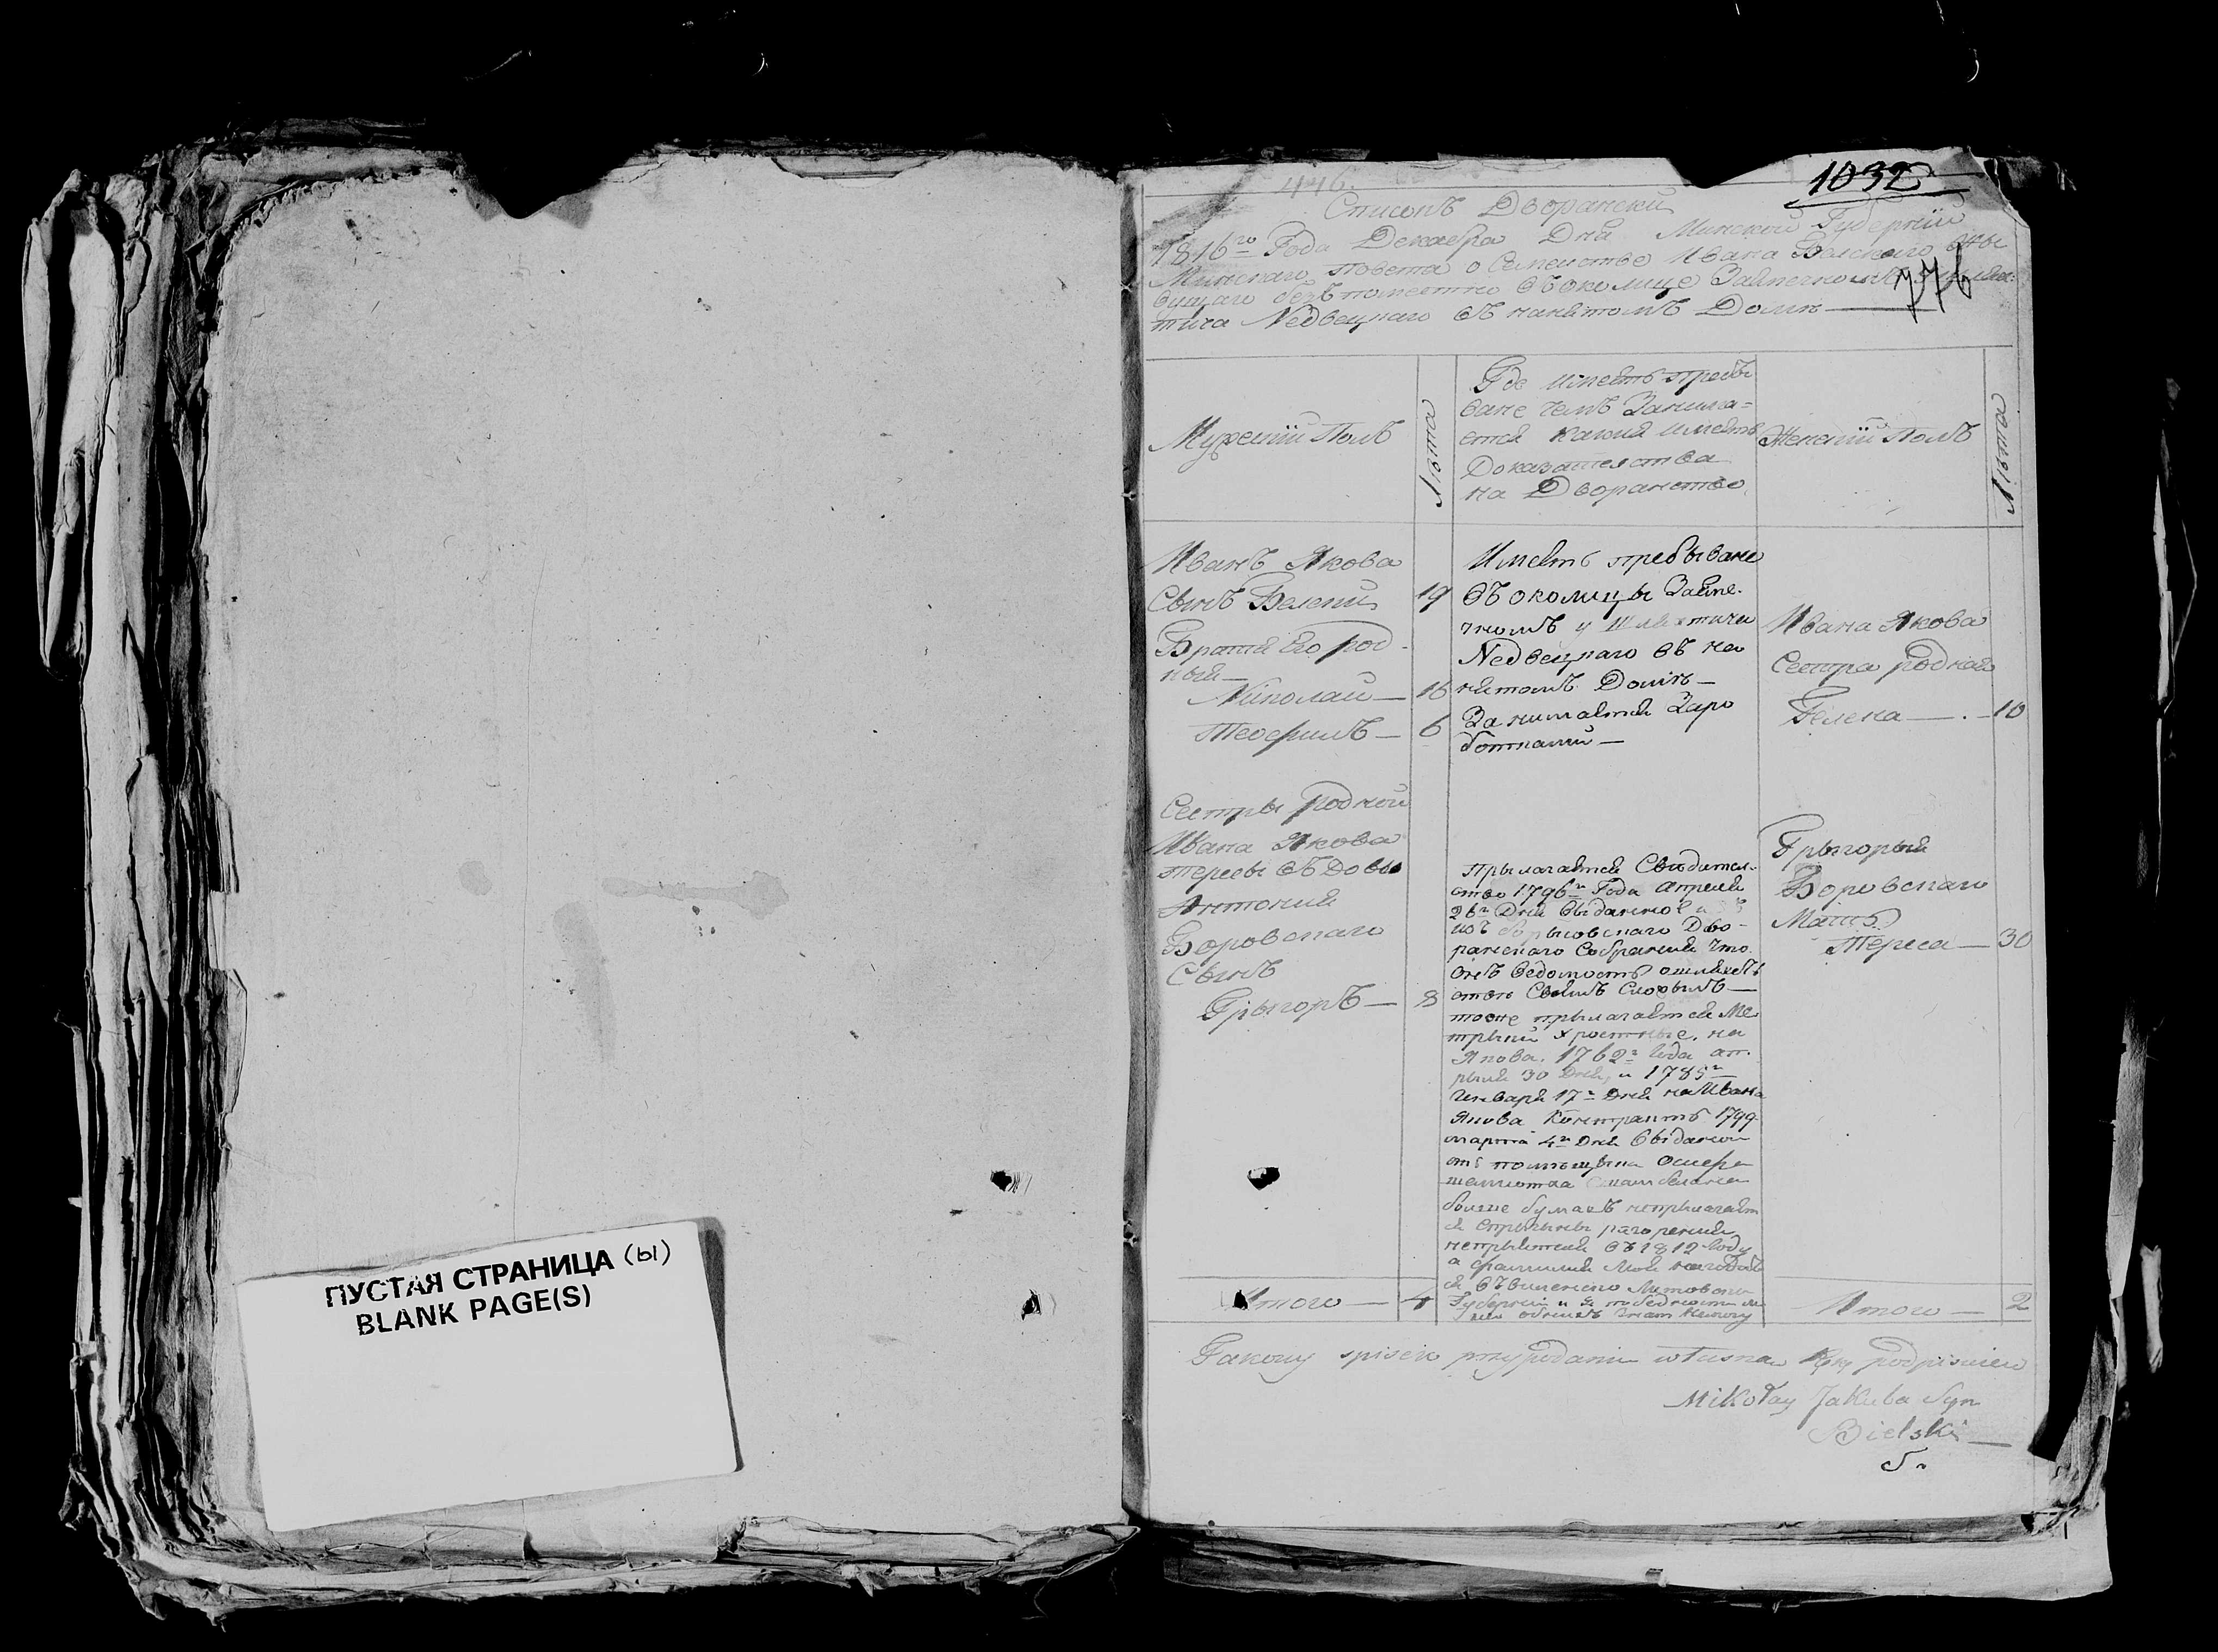 ПУСТАЯ СТРАНИЦА (ы)
BLANK PAGE(S)
446.
1032
776
Списокъ Дворански
1816го Года Декабра Дня Минской Губерніи
Минскаго повета о Семействе Ивана Белскаго
безъпоместно въ околице
Nедвецкаго въ нанетомъ Доме
Мужескій Полъ
Лета
Где имеетъ пребы
ване чемъ Занима=
ется Какия имеетъ
Доказателства
на Дворанство
Женскій Полъ
Лета
Иванъ Якова
Сынъ Белский 19
Братя Его род-
ныя
Николай — 16
Теофилъ — 6
Имеетъ пребыване
въ околицы Зайпе-
чномъ у Шляхтича
Nедвецкаго въ на
нетомъ Доме —
Занимается Заро
ботками —
Ивана Якова
Сестра родная
Гелена — 10
Сестры Родной
Ивана Якова
Тересы въ Довы
Антония
Боровскаго
Сынъ
Грыгоръ — 8
Прылагается Сведител-
ство 1796го Года Апреля
26го Дня выданное
Дво-
ранскаго Собрания что
тоже прылагается Ме
трыки хростные, на
Якова. 1762го Года ап-
рыля 30 Дня, и 1785го
Генваря 17го Дня на Ивана
Якова Контрактъ 1799
марта 4го Дня выданои
отъ помещыка
болше бумагъ непрылагает
ся спрычыны разорения
непрыятеля въ 1812 Году
а фамилия Моя находит
ся въ Виленско Литовско
Губерніи и
Грыгорыя
Боровскаго
Мать
Тереса — 30
Итого — 4
Итого — 2
Takowy spisek przypodaniu własną Ręką podpisuiew
Mikołay Jakuba Syn
Bielski —